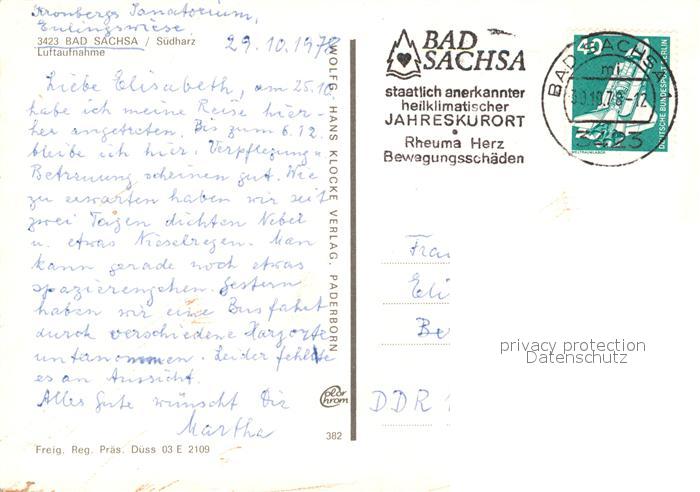 Kronbergs Sanatorium,
Eulingswiese
3423 BAD SACHSA / Südharz
Luftaufnahme
29.10.1978
Liebe Elisabeth, am 25.10
habe ich meine Reise hier-
her angetreten. Bis zum 6.12.
bleibe ich hier. Verpflegung u.
Betreuung scheinen gut. Wie
zu erwarten haben wir seit
zwei Tagen dichten Nebel
u. etwas Nieselregen. Man
kann gerade noch etwas
spazierengehen. Gestern
haben wir eine Busfahrt
durch verschiedene Harzorte
unternommen. Leider fehlte
es an Aussicht.
Alles Gute wünscht Dir
Martha
Freig. Reg. Präs. Düss 03 E 2109
WOLFG. HANS KLOCKE VERLAG, PADERBORN
382
BAD
SACHSA
staatlich anerkannter
heilklimatischer
JAHRESKURORT
•
Rheuma Herz
Bewegungsschäden
BAD SACHSA
ml
-12
3423
40
DEUTSCHE BUNDESPOST BERLIN
WELTRAUMLABOR
Frau
Eli
Be
DDR
privacy protection
Datenschutz